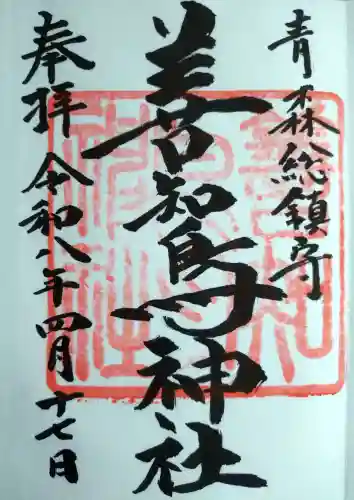 青森総鎮守
善知鳥神社
奉拝
令和八年四月十七日